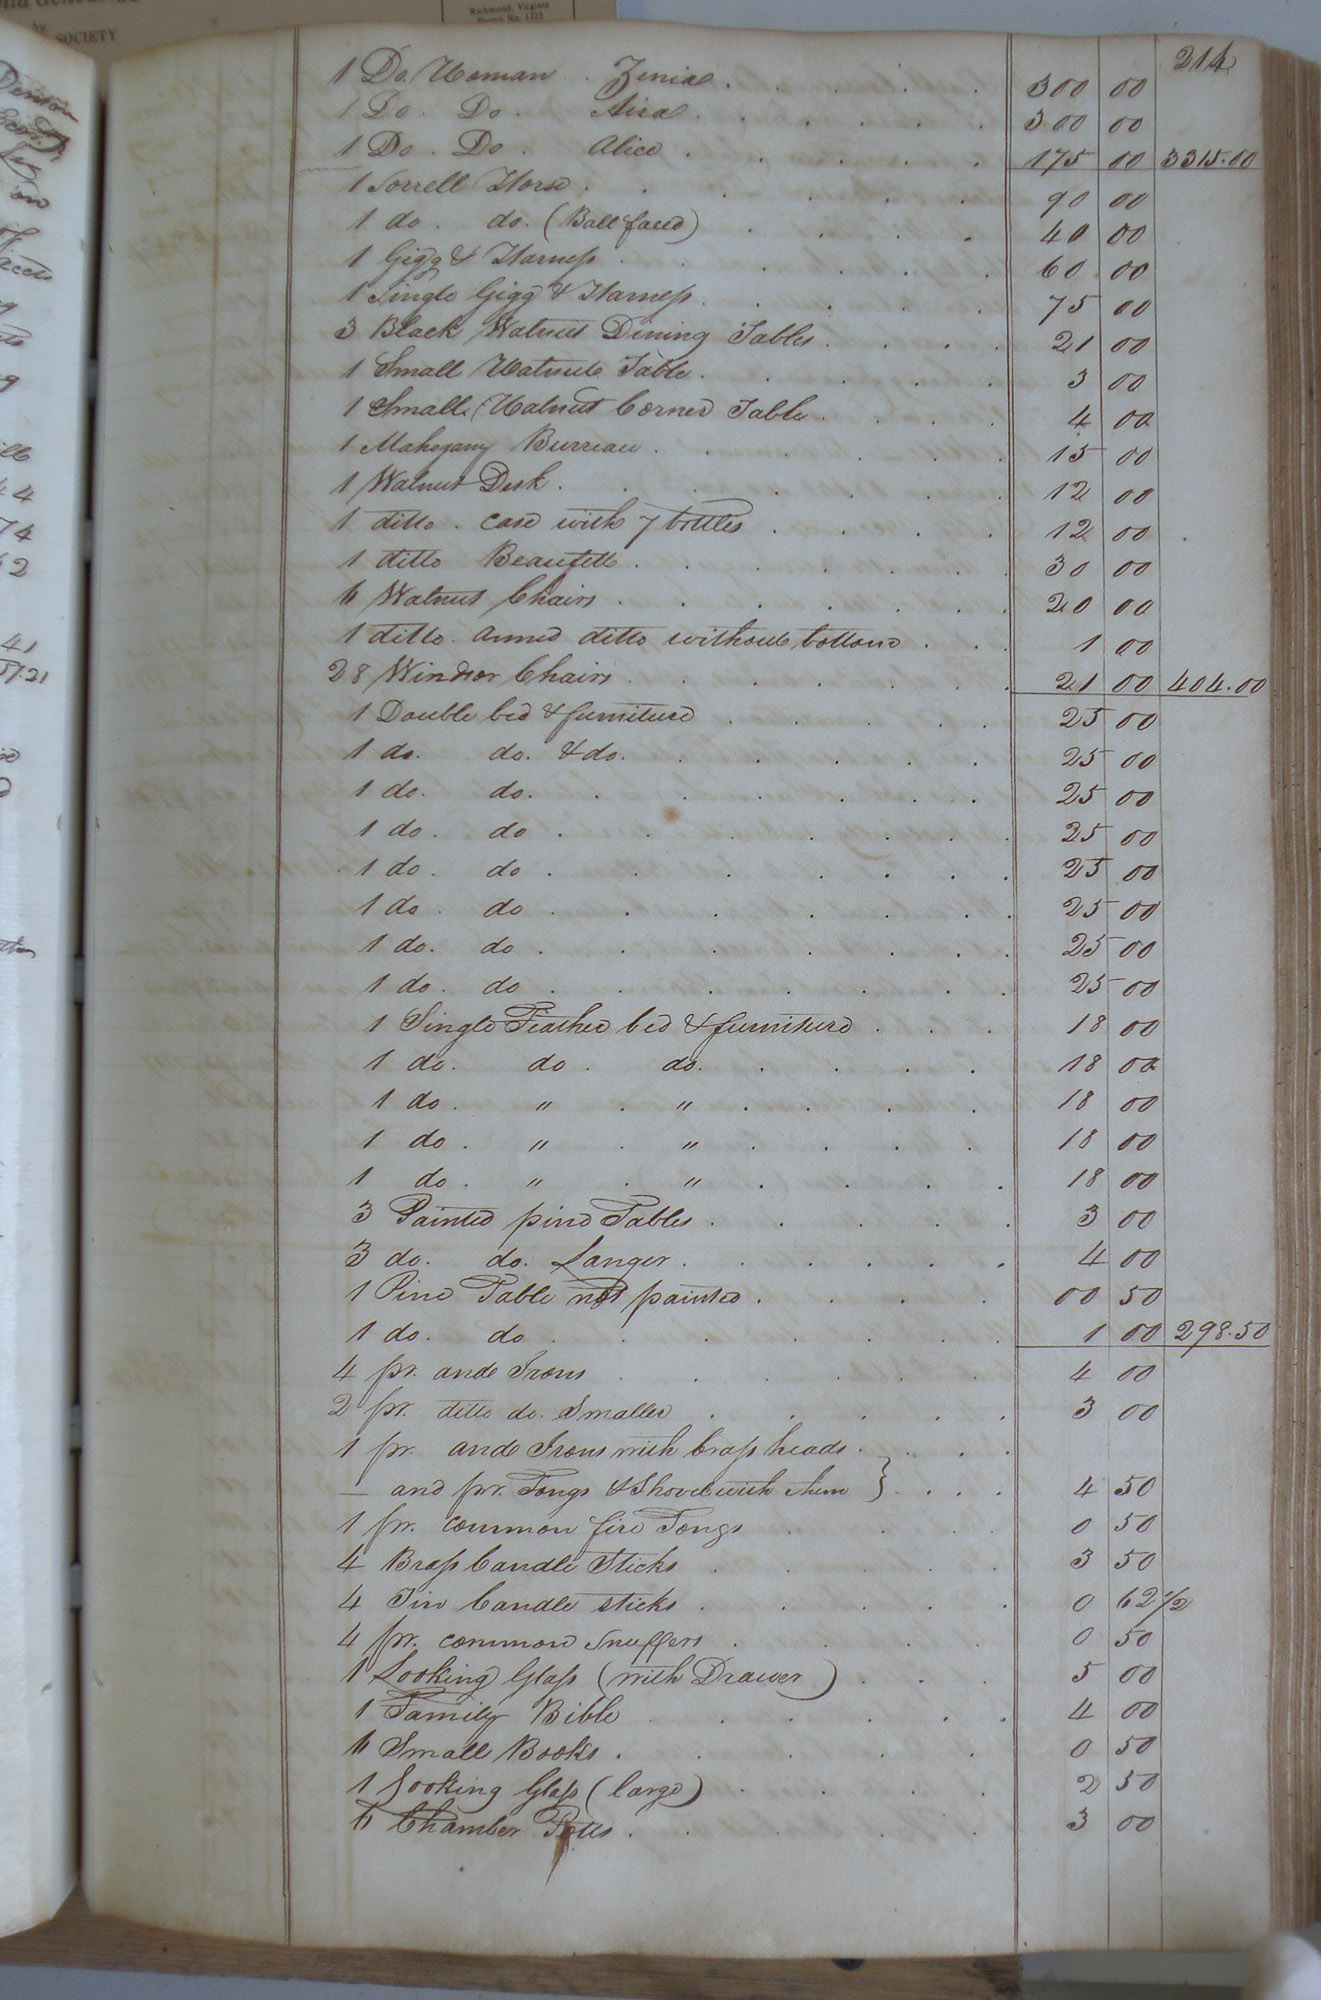 Richmond, Virginia
Permit No. 1225
SOCIETY
214
1 Do. Woman . Zenia . 300 00
1 Do. Do. Aira . 300 00
1 Do. Do. Alice . 175 00 3315.00
1 Sorrell Horse . 90 00
1 do. do. (Ball faced) . 40 00
1 Gigg & Harness . 60 00
1 Single Gigg & Harness . 75 00
3 Black Walnut Dining Tables . 21 00
1 Small Walnut Table . 3 00
1 Small Walnut Corner Table . 4 00
1 Mahogany Burreau . 15 00
1 Walnut Desk . 12 00
1 ditto . case with 7 bottles . 12 00
1 ditto Beaufett . 30 00
6 Walnut Chairs . 20 00
1 ditto . armed ditto without bottom . 1 00
28 Windsor Chairs . 21 00 404.00
1 Double bed & furniture . 25 00
1 do. do. & do. 25 00
1 do. do. 25 00
1 do. do . 25 00
1 do. do . 25 00
1 do . do . 25 00
1 do. do . 25 00
1 do. do . 25 00
1 Single Feather bed & furniture . 18 00
1 do. do . do. 18 00
1 do. " . " . 18 00
1 do. " . " . 18 00
1 do. " . " . 18 00
3 Painted pine Tables . 3 00
3 do. do. Larger . 4 00
1 Pine Table not painted . 00 50
1 do. do . 1 00 298.50
4 pr. ande Irons . 4 00
2 pr. ditto do. Smaller . 3 00
1 pr. ande Irons with brass heads .
— and pr. Tongs & Shovel with them } . 4 50
1 pr. common fire Tongs . 0 50
4 Brass Candle Sticks . 3 50
4 Tin Candle sticks . 0 62 1/2
4 pr. common Snuffers . 0 50
1 Looking Glass (with Drawer) . 5 00
1 Family Bible . 4 00
6 Small Books . 0 50
1 Looking Glass (large) . 2 50
6 Chamber Potts . 3 00